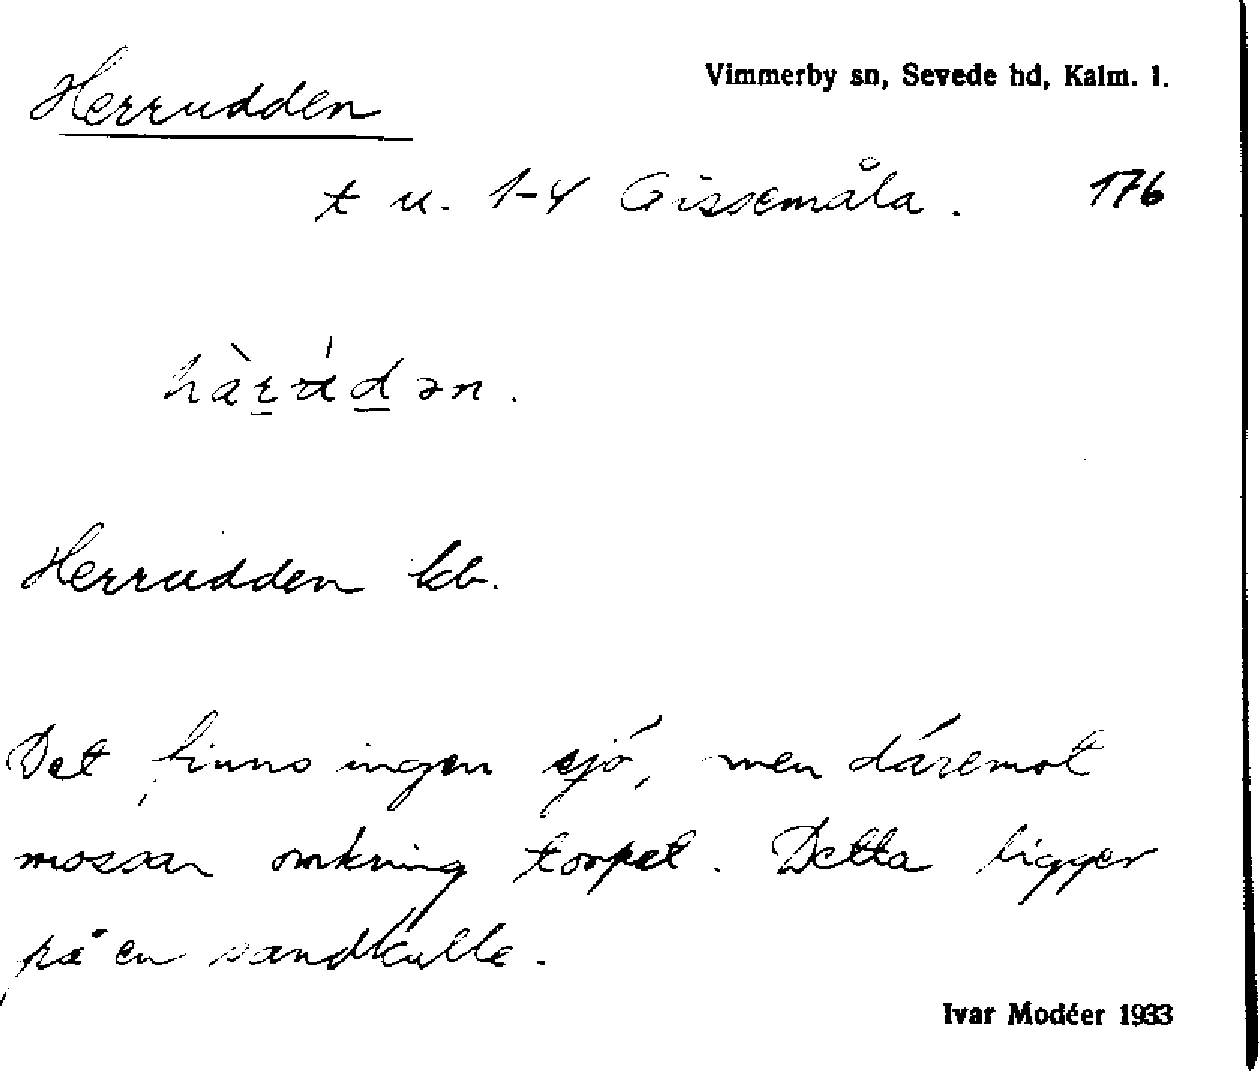 Herrudden
Vimmerby sn, Sevede hd, Kalm. l.
t u. 1-4 Gissemåla. 176
hàrúdən.
Herrudden kb.
Det finns ingen sjö, men däremot
mossar omkring torpet. Detta ligger
på en sandkulle.
Ivar Modéer 1933